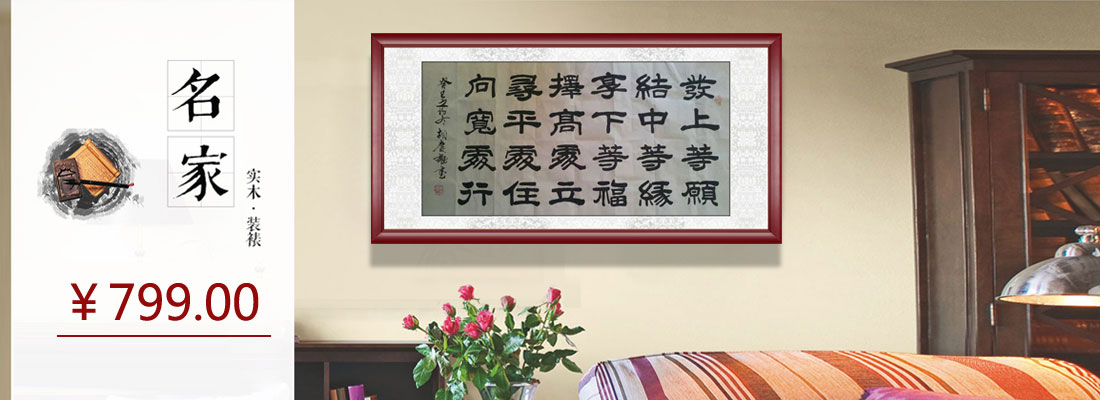 名家
实木·装裱
¥799.00
發上等願
結中等緣
享下等福
擇高處立
尋平處住
向寬處行